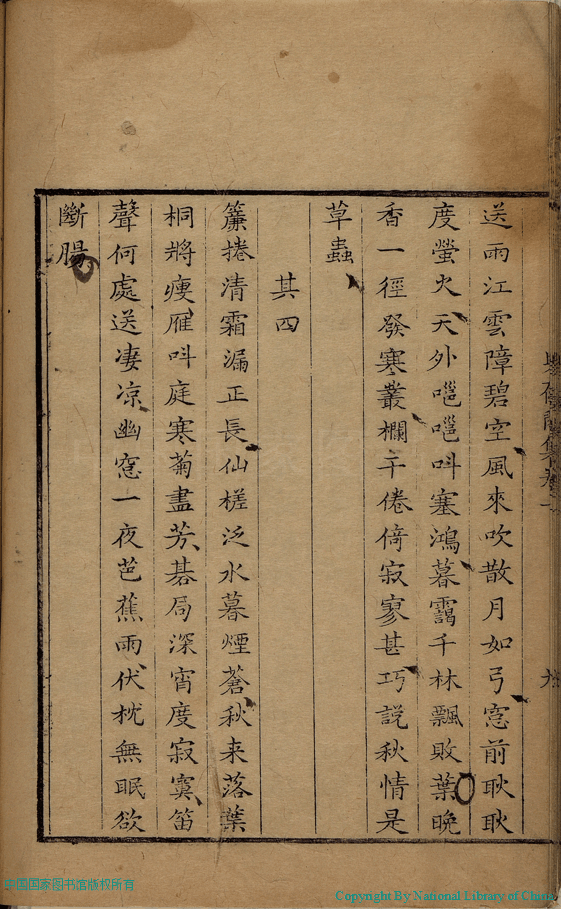 送雨江雲障碧空風來吹散月如弓窓前耿耿
度螢火天外嗈嗈呌塞鴻暮靄千林飄敗葉晚
香一徑發寒叢欄干倦倚寂寥甚巧説秋情是
草蟲
其四
簾捲清霜漏正長仙槎泛水暮煙蒼秋来落葉
桐將瘦雁呌庭寒菊盡芳碁局深宵度寂寞笛
聲何處送凄凉幽窓一夜芭蕉雨伏枕無眠欲
斷腸
中国国家图书馆版权所有
Copyright By National Library of China